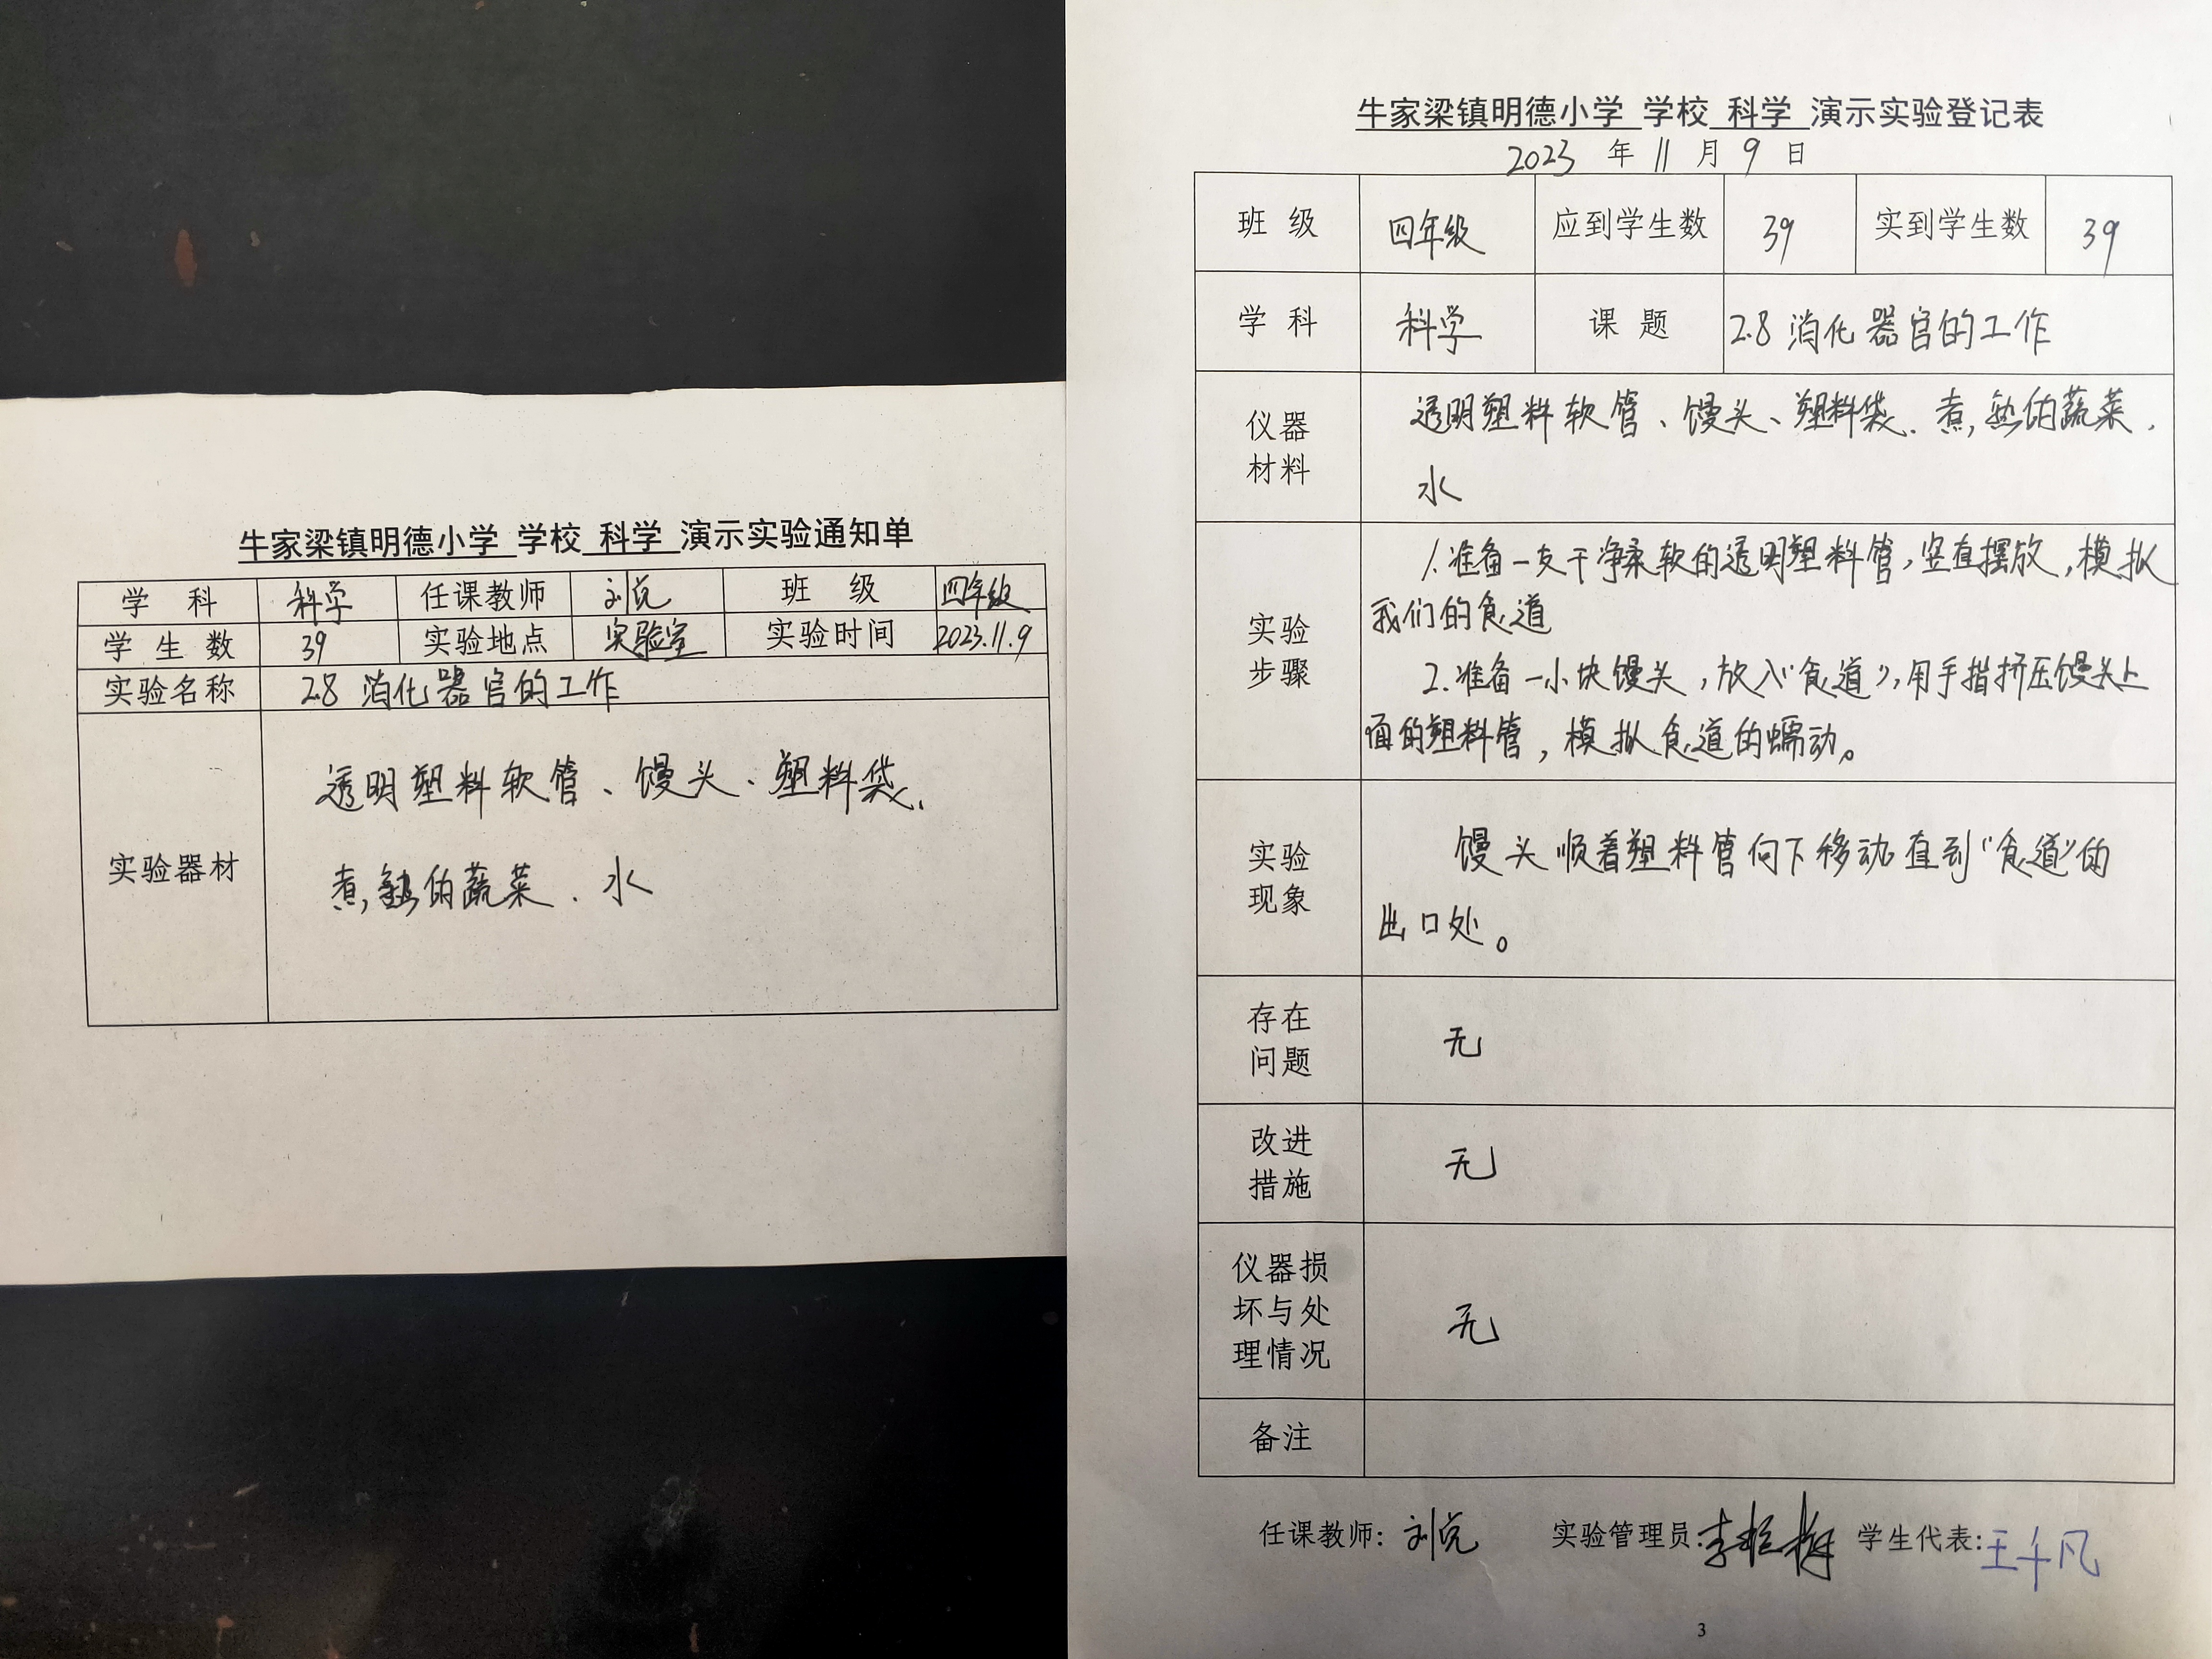 牛家梁镇明德小学 学校 科学 演示实验通知单
学 科 科学 任课教师 班 级 四年级
学 生 数 39 实验地点 实验室 实验时间 2023.11.9
实验名称 2.8 消化器官的工作
实验器材
透明塑料软管、馒头、塑料袋、
煮熟的蔬菜、水
牛家梁镇明德小学 学校 科学 演示实验登记表
2023 年 11 月 9 日
班 级 四年级 应到学生数 39 实到学生数 39
学 科 科学 课 题 2.8 消化器官的工作
仪器
材料
透明塑料软管、馒头、塑料袋、煮熟的蔬菜、
水
实验
步骤
1.准备一支干净柔软的透明塑料管,竖直摆放,模拟
我们的食道
2.准备一小块馒头,放入“食道”,用手指挤压馒头上
面的塑料管,模拟食道的蠕动。
实验
现象
馒头顺着塑料管向下移动直到“食道”的
出口处。
存在
问题
无
改进
措施
无
仪器损
坏与处
理情况
无
备注
任课教师: 实验管理员: 学生代表:王千凡
3